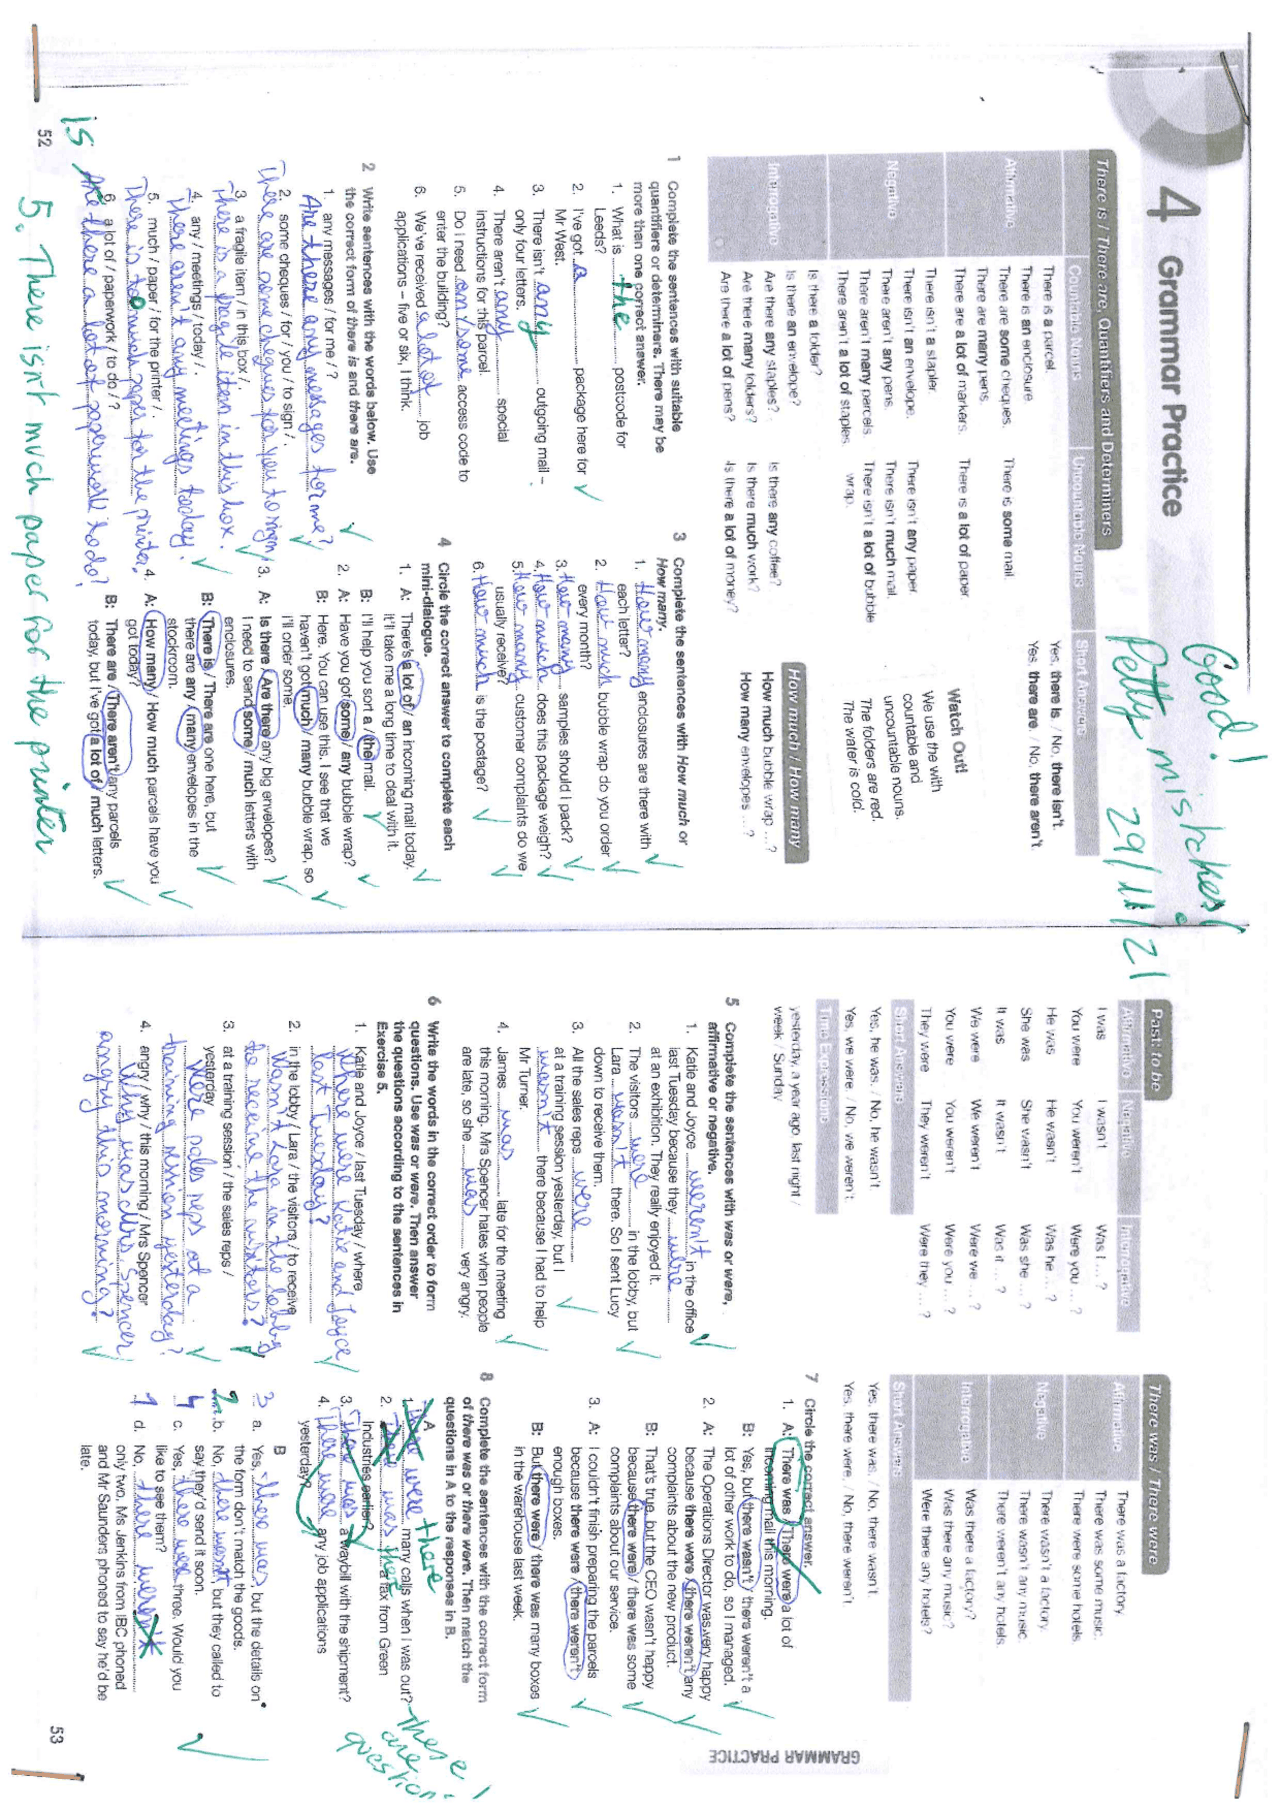 4 Grammar Practice
Good!
Petty mistakes!
29/11/21
There is / There are, Quantifiers and Determiners
Countable Nouns
Uncountable Nouns
Short Answers
Affirmative
There is a parcel.
There is an enclosure.
There are some cheques.
There are many pens.
There are a lot of markers.
There is some mail.
There is a lot of paper.
Yes, there is. / No, there isn't.
Yes, there are. / No, there aren't.
Negative
There isn't a stapler.
There isn't an envelope.
There aren't any pens.
There aren't many parcels.
There aren't a lot of staples.
There isn't any paper.
There isn't much mail.
There isn't a lot of bubble
wrap.
Watch Out!
We use the with
countable and
uncountable nouns.
The folders are red.
The water is cold.
Interrogative
Is there a folder?
Is there an envelope?
Are there any staples?
Are there many folders?
Are there a lot of pens?
Is there any coffee?
Is there much work?
Is there a lot of money?
How much / How many
How much bubble wrap ...?
How many envelopes ...?
1 Complete the sentences with suitable
quantifiers or determiners. There may be
more than one correct answer.
1. What is the postcode for
Leeds?
2. I've got a package here for
Mr West.
3. There isn't any outgoing mail –
only four letters.
4. There aren't any special
instructions for this parcel.
5. Do I need any/some access code to
enter the building?
6. We've received a lot of job
applications – five or six, I think.
2 Write sentences with the words below. Use
the correct form of there is and there are.
1. any messages / for me / ?
Are there any messages for me?
2. some cheques / for / you / to sign / .
There are some cheques for you to sign
3. a fragile item / in this box / .
There is a fragile item in this box.
4. any / meetings / today / .
There aren't any meetings today.
5. much / paper / for the printer / .
There is to much paper for the printer.
6. a lot of / paperwork / to do / ?
is
Are there a lot of paperwork to do?
52
5. There isn't much paper for the printer
3 Complete the sentences with How much or
How many.
1. How many enclosures are there with
each letter?
2. How much bubble wrap do you order
every month?
3. How many samples should I pack?
4. How much does this package weigh?
5. How many customer complaints do we
usually receive?
6. How much is the postage?
4 Circle the correct answer to complete each
mini-dialogue.
1. A: There's a lot of / an incoming mail today.
it'll take me a long time to deal with it.
B: I'll help you sort a / the mail.
2. A: Have you got some / any bubble wrap?
B: Here. You can use this. I see that we
haven't got much / many bubble wrap, so
I'll order some.
3. A: Is there / Are there any big envelopes?
I need to send some / much letters with
enclosures.
B: There is / There are one here, but
there are any / many envelopes in the
stockroom.
4. A: How many / How much parcels have you
got today?
B: There are / There aren't any parcels
today, but I've got a lot of / much letters.
Past: to be
Affirmative
Negative
Interrogative
I was
I wasn't
Was I ... ?
You were
You weren't
Were you ... ?
He was
He wasn't
Was he ... ?
She was
She wasn't
Was she ... ?
It was
It wasn't
Was it ... ?
We were
We weren't
Were we ... ?
You were
You weren't
Were you ... ?
They were
They weren't
Were they ... ?
Short Answers
Yes, he was. / No, he wasn't.
Yes, we were. / No, we weren't.
Time Expressions
yesterday, a year ago, last night /
week / Sunday
5 Complete the sentences with was or were,
affirmative or negative.
1. Katie and Joyce weren't in the office
last Tuesday because they were
at an exhibition. They really enjoyed it.
2. The visitors were in the lobby, but
Lara wasn't there. So I sent Lucy
down to receive them.
3. All the sales reps were
at a training session yesterday, but I
wasn't there because I had to help
Mr Turner.
4. James was late for the meeting
this morning. Mrs Spencer hates when people
are late, so she was very angry.
6 Write the words in the correct order to form
questions. Use was or were. Then answer
the questions according to the sentences in
Exercise 5.
1. Katie and Joyce / last Tuesday / where
Where were Katie and Joyce
last Tuesday?
2. in the lobby / Lara / the visitors / to receive
Wasn't Lara in the lobby
to receive the visitors?
3. at a training session / the sales reps /
yesterday
Were sales reps at a
training session yesterday?
4. angry / why / this morning / Mrs Spencer
Why was Mrs. Spencer
angry this morning?
There was / There were
Affirmative
There was a factory.
There was some music.
There were some hotels.
Negative
There wasn't a factory.
There wasn't any music.
There weren't any hotels.
Interrogative
Was there a factory?
Was there any music?
Were there any hotels?
Short Answers
Yes, there was. / No, there wasn't.
Yes, there were. / No, there weren't.
7 Circle the correct answer.
1. A: There was / There were a lot of
incoming mail this morning.
B: Yes, but there wasn't / there weren't a
lot of other work to do, so I managed.
2. A: The Operations Director was very happy
because there were / there weren't any
complaints about the new product.
B: That's true, but the CEO wasn't happy
because there were / there was some
complaints about our service.
3. A: I couldn't finish preparing the parcels
because there were / there weren't
enough boxes.
B: But there were / there was many boxes
in the warehouse last week.
8 Complete the sentences with the correct form
of there was or there were. Then match the
questions in A to the responses in B.
A
1. There were there many calls when I was out?
2. There was there a fax from Green
Industries earlier?
3. There was a waybill with the shipment?
4. There were any job applications
yesterday?
These
are
question
!
B
3 a. Yes, there was but the details on
the form don't match the goods.
2 b. No, there wasn't, but they called to
say they'd send it soon.
4 c. Yes, there were three. Would you
like to see them?
1 d. No, there weren't
only two. Ms Jenkins from IBC phoned
and Mr Saunders phoned to say he'd be
late.
GRAMMAR PRACTICE
53